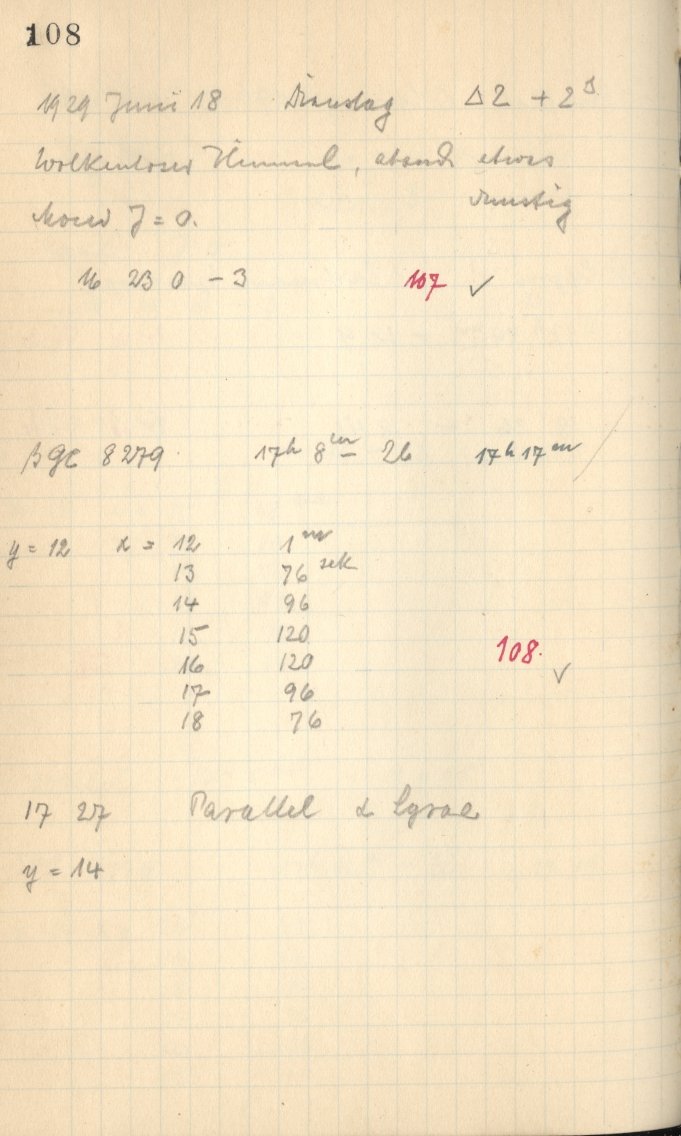 108
1929 Juni 18 Dienstag Δ2 + 2ˢ
Wolkenloser Himmel, abends etwas
dunstig
Mond J = 0.
16 23 0 - 3 107 ✓
βGC 8279 17ʰ 8ᵐ - 26 17ʰ 17ᵐ
y = 12 x = 12 1ᵐ
13 76 sek
14 96
15 120
16 120 108. ✓
17 96
18 76
17 27 Parallel α Lyrae
y = 14